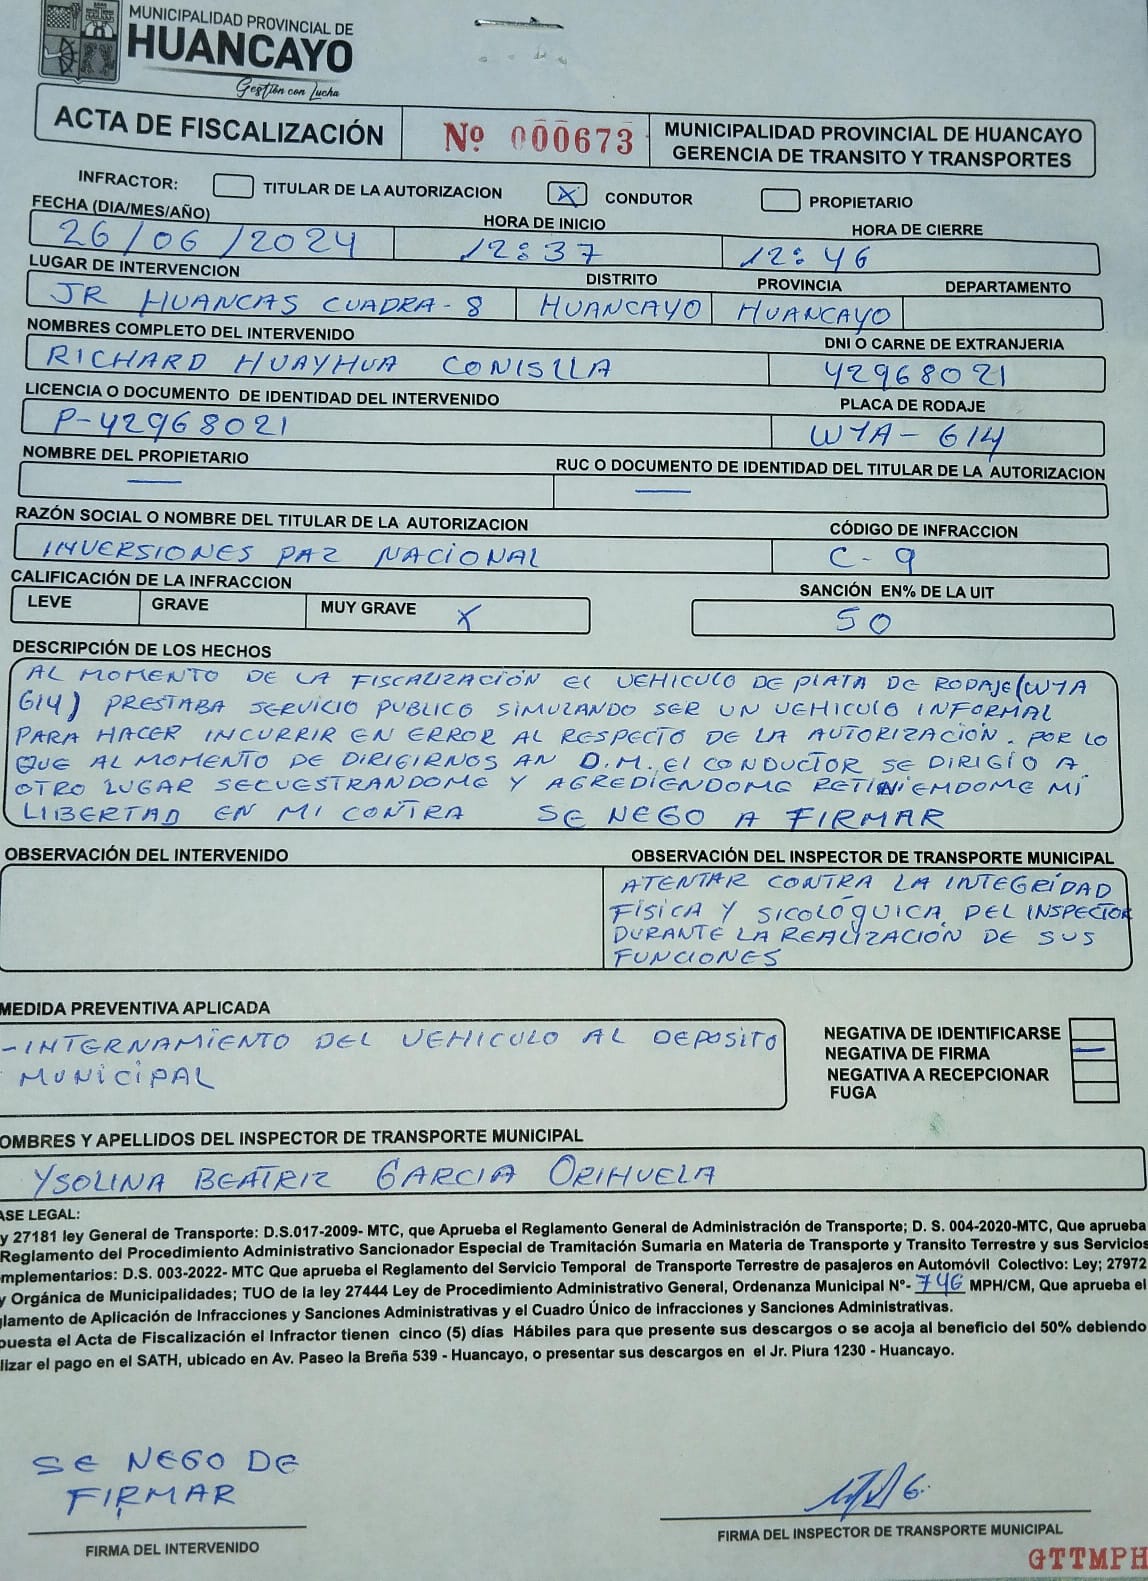 MUNICIPALIDAD PROVINCIAL DE
HUANCAYO
Gestión con Lucha
ACTA DE FISCALIZACIÓN
Nº 000673
MUNICIPALIDAD PROVINCIAL DE HUANCAYO
GERENCIA DE TRANSITO Y TRANSPORTES
INFRACTOR: TITULAR DE LA AUTORIZACION X CONDUTOR PROPIETARIO
FECHA (DIA/MES/AÑO) HORA DE INICIO HORA DE CIERRE
26/06/2024 12:37 12:46
LUGAR DE INTERVENCION DISTRITO PROVINCIA DEPARTAMENTO
JR HUANCAS CUADRA-8 HUANCAYO HUANCAYO
NOMBRES COMPLETO DEL INTERVENIDO DNI O CARNE DE EXTRANJERIA
RICHARD HUAYHUA CONISLLA 42968021
LICENCIA O DOCUMENTO DE IDENTIDAD DEL INTERVENIDO PLACA DE RODAJE
P-42968021 W1A-614
NOMBRE DEL PROPIETARIO RUC O DOCUMENTO DE IDENTIDAD DEL TITULAR DE LA AUTORIZACION
— —
RAZÓN SOCIAL O NOMBRE DEL TITULAR DE LA AUTORIZACION CÓDIGO DE INFRACCION
INVERSIONES PAZ NACIONAL C-9
CALIFICACIÓN DE LA INFRACCION SANCIÓN EN% DE LA UIT
LEVE GRAVE MUY GRAVE X 50
DESCRIPCIÓN DE LOS HECHOS
AL MOMENTO DE LA FISCALIZACIÓN EL VEHICULO DE PLATA DE RODAJE (W1A
614) PRESTABA SERVICIO PUBLICO SIMULANDO SER UN VEHICULO INFORMAL
PARA HACER INCURRIR EN ERROR AL RESPECTO DE LA AUTORIZACIÓN. POR LO
QUE AL MOMENTO DE DIRIGIRNOS AN D.M. EL CONDUCTOR SE DIRIGIÓ A
OTRO LUGAR SECUESTRANDOME Y AGREDIENDOME RETINIENDOME MI
LIBERTAD EN MI CONTRA SE NEGO A FIRMAR
OBSERVACIÓN DEL INTERVENIDO OBSERVACIÓN DEL INSPECTOR DE TRANSPORTE MUNICIPAL
ATENTAR CONTRA LA INTEGRIDAD
FÍSICA Y SICOLÓGUICA DEL INSPECTOR
DURANTE LA REALIZACIÓN DE SUS
FUNCIONES
MEDIDA PREVENTIVA APLICADA
- INTERNAMIENTO DEL VEHICULO AL DEPOSITO
MUNICIPAL
NEGATIVA DE IDENTIFICARSE
NEGATIVA DE FIRMA —
NEGATIVA A RECEPCIONAR
FUGA
OMBRES Y APELLIDOS DEL INSPECTOR DE TRANSPORTE MUNICIPAL
YSOLINA BEATRIZ GARCIA ORIHUELA
ASE LEGAL:
y 27181 ley General de Transporte: D.S.017-2009- MTC, que Aprueba el Reglamento General de Administración de Transporte; D. S. 004-2020-MTC, Que aprueba
Reglamento del Procedimiento Administrativo Sancionador Especial de Tramitación Sumaria en Materia de Transporte y Transito Terrestre y sus Servicios
mplementarios: D.S. 003-2022- MTC Que aprueba el Reglamento del Servicio Temporal de Transporte Terrestre de pasajeros en Automóvil Colectivo: Ley; 27972
y Orgánica de Municipalidades; TUO de la ley 27444 Ley de Procedimiento Administrativo General, Ordenanza Municipal N°- 746 MPH/CM, Que aprueba el
glamento de Aplicación de Infracciones y Sanciones Administrativas y el Cuadro Único de Infracciones y Sanciones Administrativas.
puesta el Acta de Fiscalización el Infractor tienen cinco (5) días Hábiles para que presente sus descargos o se acoja al beneficio del 50% debiendo
lizar el pago en el SATH, ubicado en Av. Paseo la Breña 539 - Huancayo, o presentar sus descargos en el Jr. Piura 1230 - Huancayo.
SE NEGO DE
FIRMAR
FIRMA DEL INTERVENIDO
FIRMA DEL INSPECTOR DE TRANSPORTE MUNICIPAL
GTTMPH